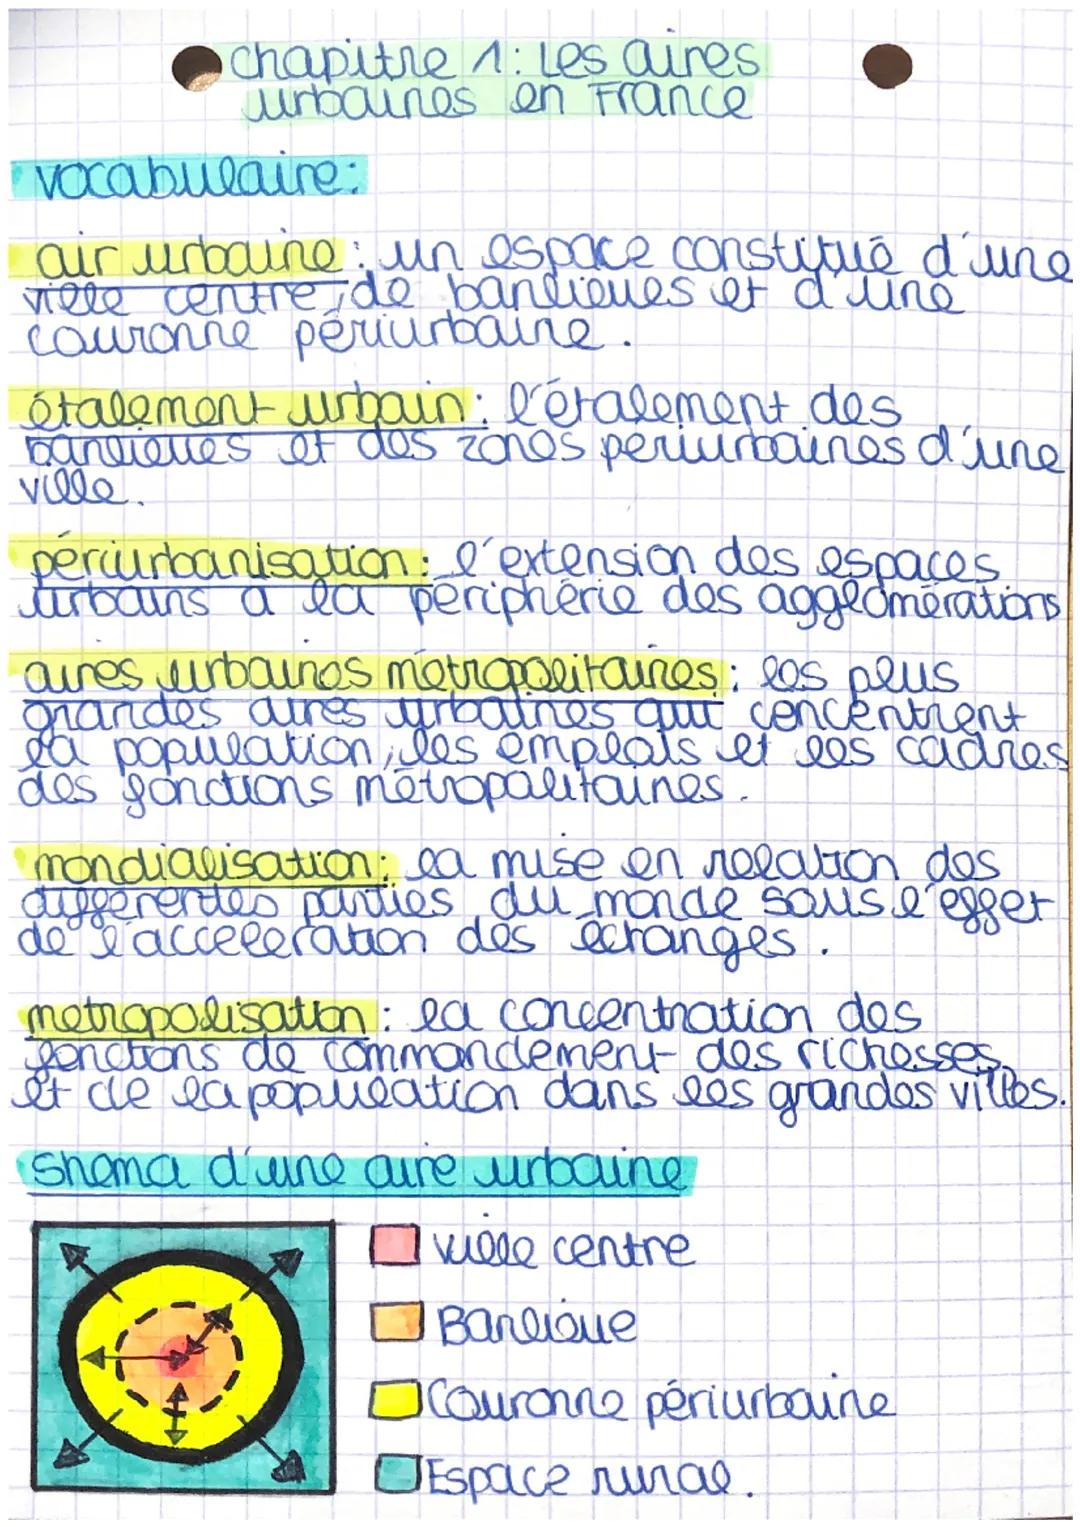 chapitre 1 : Les aires
urbaines en France
vocabulaire :
air urbaine : un espace constitué d'une
ville centre, de banlieues et d'une
couronne périurbaine.
étalement urbain : l'étalement des
banlieues et des zones périurbaines d'une
ville.
périurbanisation : l'extension des espaces
urbains a la périphérie des agglomérations
aires urbaines métropolitaines : les plus
grandes aires urbaines qui concentrent
la population, les emplois et les cadres
des fonctions métropolitaines.
mondialisation : la mise en relation des
différentes parties du monde sous l'effet
de l'acceleration des échanges.
metropolisation : la concentration des
fonctions de commandement des richesses
et de la population dans les grandes villes.
shema d'une aire urbaine
ville centre
Banlieue
Couronne périurbaine
Espace rural.